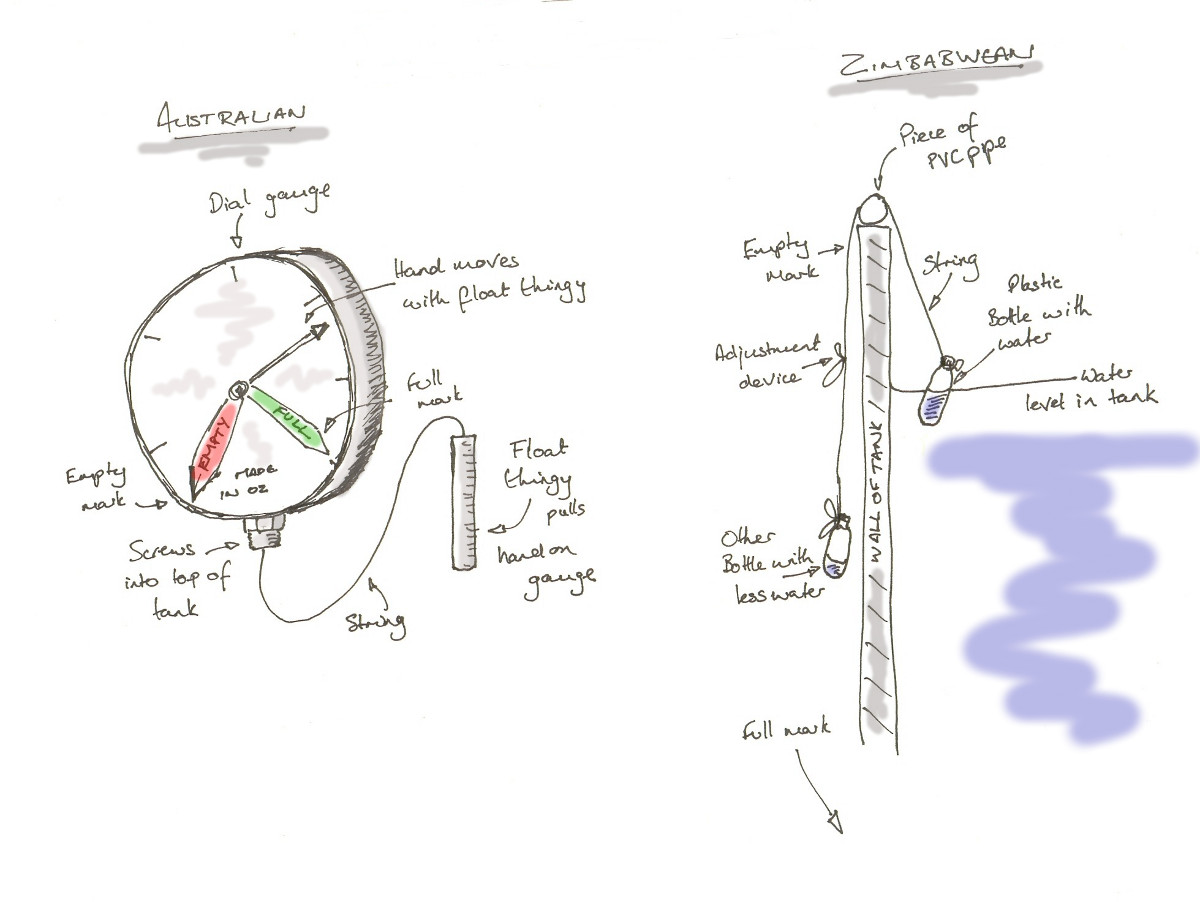 AUSTRALIAN
Dial gauge
Hand moves
with float thingy
Full
mark
FULL
EMPTY
MADE
IN OZ
Empty
mark
Screws
into top of
tank
String
Float
thingy
pulls
hand on
gauge
ZIMBABWEAN
Piece of
PVC pipe
Empty
mark
String
Plastic
Bottle with
water
Adjustment
device
Water
level in tank
WALL OF TANK
Other
Bottle with
less water
Full mark